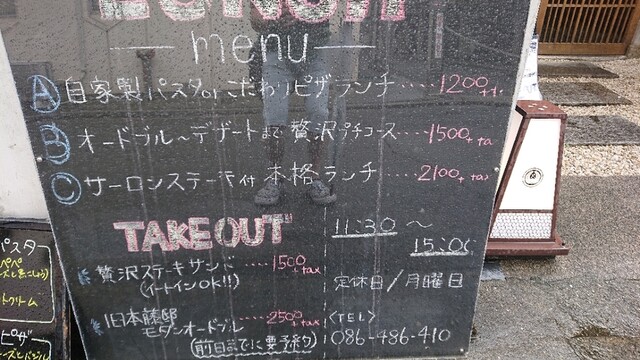 LUNCH
menu
Ⓐ 自家製パスタorこだわりピザランチ・・・・1200+tax
Ⓑ オードブル〜デザートまで贅沢プチコース・・・・1500+tax
Ⓒ サーロンステーキ付本格ランチ・・・・2100+tax
TAKE OUT
贅沢ステーキサンド・・・・1500+tax
(イートインOK!!)
旧日本藤邸
モダンオードブル・・・・2500+tax
(前日までに要予約)
11:30〜
15:00
定休日/月曜日
<TEL>
086-486-410
パスタ